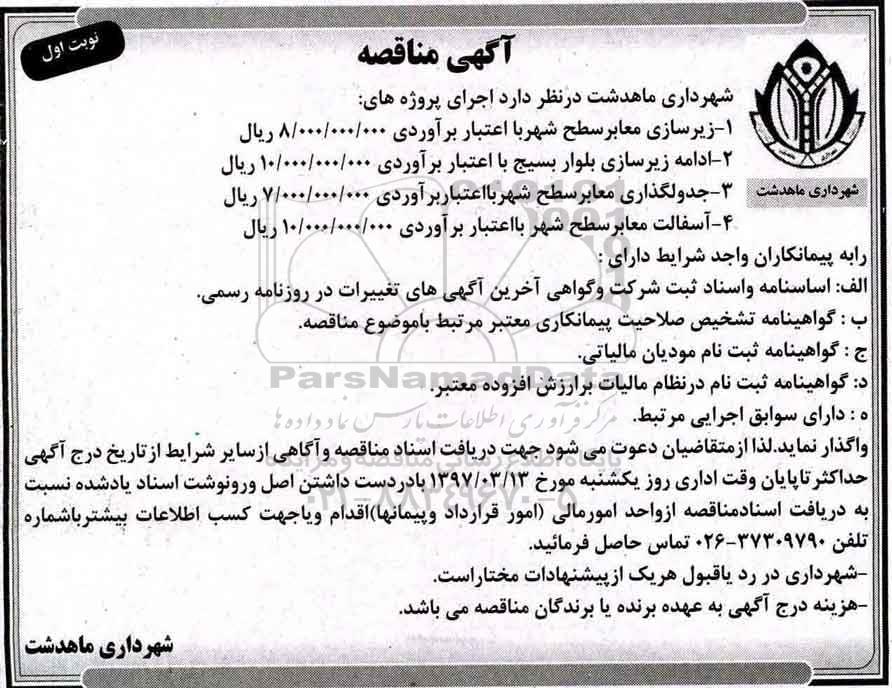 نوبت اول
آگهی مناقصه
شهرداری ماهدشت
شهرداری ماهدشت درنظر دارد اجرای پروژه های:
۱-زیرسازی معابرسطح شهربا اعتبار برآوردی ۸/۰۰۰/۰۰۰/۰۰۰ ریال
۲-ادامه زیرسازی بلوار بسیج با اعتبار برآوردی ۱۰/۰۰۰/۰۰۰/۰۰۰ ریال
۳-جدولگذاری معابرسطح شهربااعتباربرآوردی ۷/۰۰۰/۰۰۰/۰۰۰ ریال
۴-آسفالت معابرسطح شهر بااعتبار برآوردی ۱۰/۰۰۰/۰۰۰/۰۰۰ ریال
رابه پیمانکاران واجد شرایط دارای :
الف: اساسنامه واسناد ثبت شرکت وگواهی آخرین آگهی های تغییرات در روزنامه رسمی.
ب : گواهینامه تشخیص صلاحیت پیمانکاری معتبر مرتبط باموضوع مناقصه.
ج : گواهینامه ثبت نام مودیان مالیاتی.
د: گواهینامه ثبت نام درنظام مالیات برارزش افزوده معتبر.
ه : دارای سوابق اجرایی مرتبط.
واگذار نماید.لذا ازمتقاضیان دعوت می شود جهت دریافت اسناد مناقصه وآگاهی ازسایر شرایط ازتاریخ درج آگهی
حداکثرتاپایان وقت اداری روز یکشنبه مورخ ۱۳۹۷/۰۳/۱۳ بادردست داشتن اصل ورونوشت اسناد یادشده نسبت
به دریافت اسنادمناقصه ازواحد امورمالی (امور قرارداد وپیمانها)اقدام ویاجهت کسب اطلاعات بیشترباشماره
تلفن ۳۷۳۰۹۷۹۰-۰۲۶ تماس حاصل فرمائید.
-شهرداری در رد یاقبول هریک ازپیشنهادات مختاراست.
-هزینه درج آگهی به عهده برنده یا برندگان مناقصه می باشد.
شهرداری ماهدشت
ParsNamadData
مرکز فرآوری اطلاعات پارس نماد داده ها
پایگاه اطلاع رسانی مناقصه و مزایده
۰۲۱-۸۸۳۴۹۶۷۰-۵